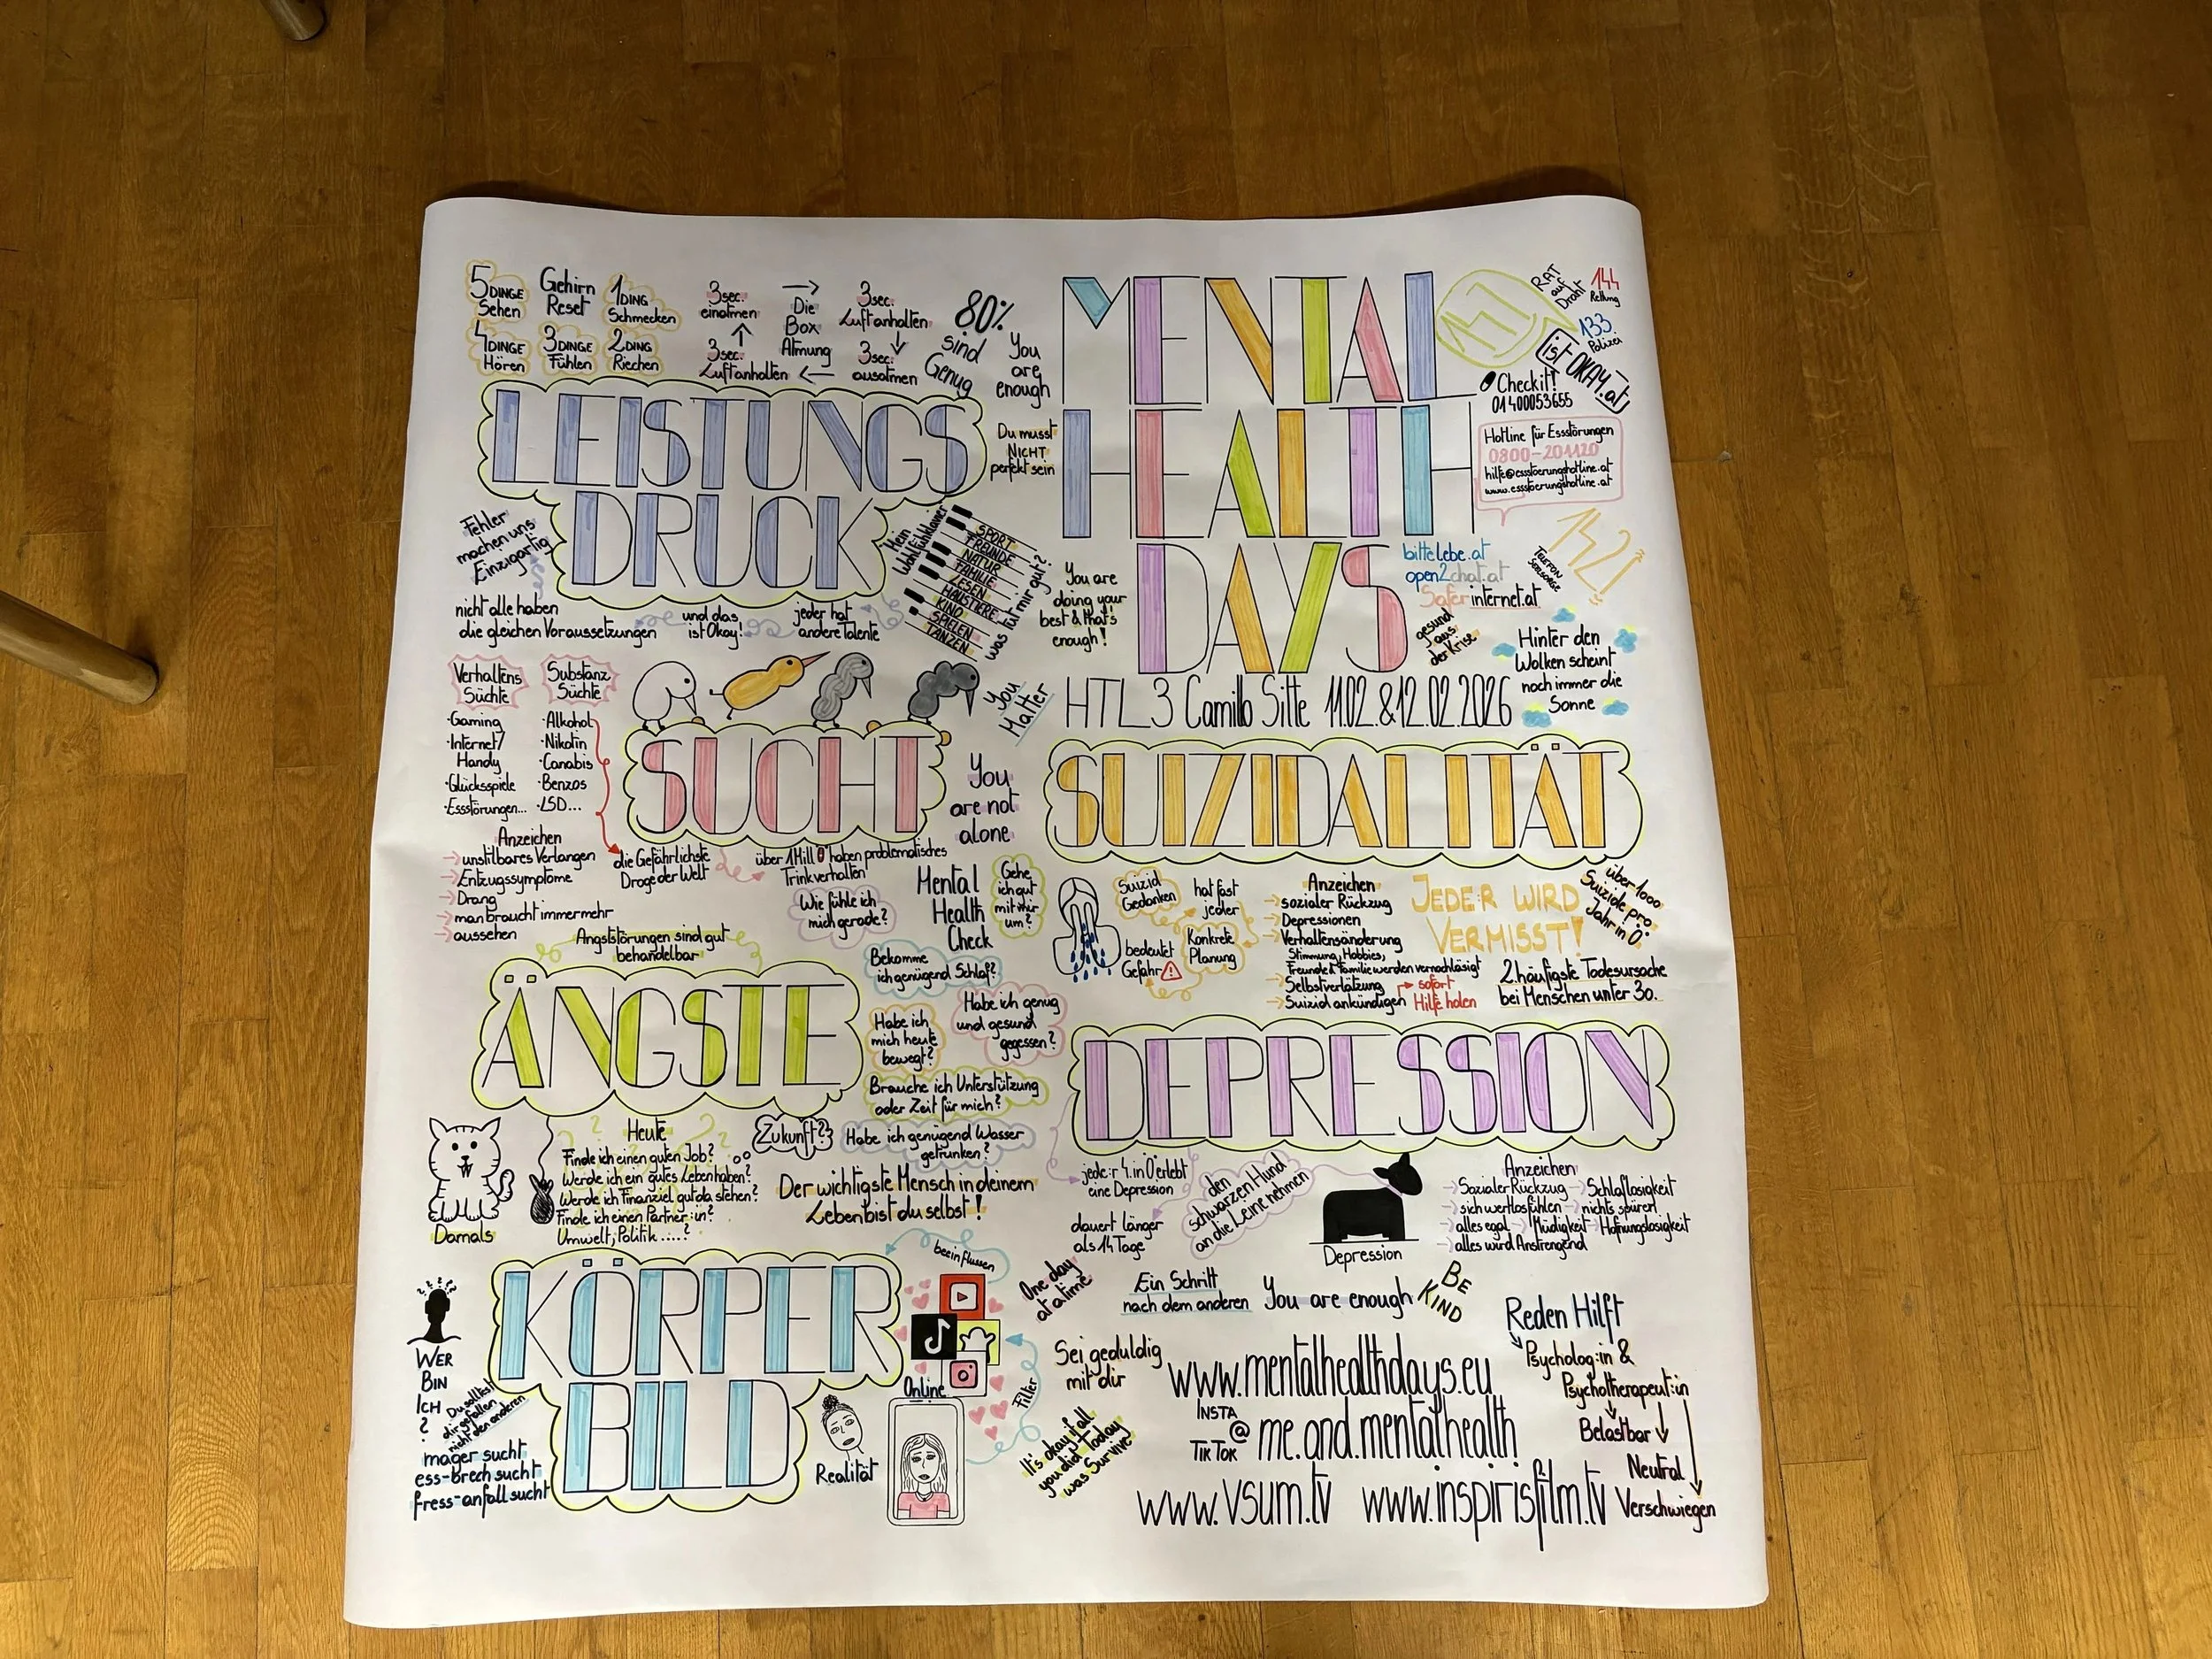 MENTAL
HEALTH
DAYS
HTL 3 Camillo Sitte 11.02.&12.02.2026
147
RAT
auf
Draht
144
Rettung
133
Polizei
ist OKAY.at
Checkit!
01400053655
Hotline für Essstörungen
0800-201120
hilfe@essstoerungshotline.at
www.essstoerungshotline.at
142
TELEFON
SEELSORGE
bittelebe.at
open2chat.at
Saferinternet.at
gesund
aus
der Krise
Hinter den
Wolken scheint
noch immer die
Sonne
5 DINGE
Sehen
Gehirn
Reset
1 DING
Schmecken
4 DINGE
Hören
3 DINGE
Fühlen
2 DING
Riechen
3sec.
einatmen
Die
Box
Atmung
3sec.
Luftanhalten
3sec.
Luftanhalten
3sec.
ausatmen
80%
sind
Genug
You
are
enough
LEISTUNGS
DRUCK
Du musst
NICHT
perfekt sein
Fehler
machen uns
Einzigartig
nicht alle haben
die gleichen Voraussetzungen
und das
ist Okay!
jeder hat
andere Talente
Mein
Wohlfühlklavier
SPORT
FREUNDE
NATUR
FAMILIE
LESEN
HAUSTIERE
KINO
SPIELEN
TANZEN
was tut mir gut?
You are
doing your
best & that's
enough!
Verhaltens
Süchte
·Gaming
·Internet/
Handy
·Glücksspiele
·Essstörungen...
Substanz
Süchte
·Alkohol
·Nikotin
·Canabis
·Benzos
·LSD...
SUCHT
You
Matter
You
are not
alone
Anzeichen
unstilbares Verlangen
Entzugssymptome
Drang
man braucht immer mehr
aussehen
die Gefährlichste
Droge der Welt
über 1 Mill Ö haben problematisches
Trinkverhalten
Mental
Health
Check
Wie fühle ich
mich gerade?
Gehe
ich gut
mit mir
um?
Bekomme
ich genügend Schlaf?
Habe ich genug
und gesund
gegessen?
Habe ich
mich heute
bewegt?
Brauche ich Unterstützung
oder Zeit für mich?
Habe ich genügend Wasser
getrunken?
Der wichtigste Mensch in deinem
Leben bist du selbst!
SUIZIDALITÄT
Suizid
Gedanken
hat fast
jeder
Konkrete
Planung
bedeutet
Gefahr
Anzeichen
sozialer Rückzug
Depressionen
Verhaltensänderung
Stimmung, Hobbies,
Freunde & Familie werden vernachläsigt
Selbstverlätzung
Suizid ankündigen
sofort
Hilfe holen
JEDER WIRD
VERMISST!
über 1000
Suizide pro
Jahr in Ö.
2.häufigste Todesursache
bei Menschen unter 30.
Angststörungen sind gut
behandelbar
ÄNGSTE
Damals
Heute
Finde ich einen guten Job?
Werde ich ein gutes Leben haben?
Werde ich Finanziel gut da stehen?
Finde ich einen Partner:in?
Umwelt, Politik.....?
Zukunft?
DEPRESSION
jede:r 4. in Ö erlebt
eine Depression
dauert länger
als 14 Tage
den
schwarzen Hund
an die Leine nehmen
Depression
Anzeichen
Sozialer Rückzug
Schlaflosigkeit
sich wertlos fühlen
nichts spüren
alles egal
Müdigkeit
Hofnungslosigkeit
alles wird Anstrengend
One day
at a time
Ein Schritt
nach dem anderen
You are enough
BE
KIND
KÖRPER
BILD
WER
BIN
ICH
?
Du solltest
dir gefallen
nicht den anderen
mager sucht
ess-brech sucht
fress-anfall sucht
beeinflussen
Online
Filter
Realität
Sei geduldig
mit dir
It's okay if all
you did Today
was Survive
Reden Hilft
Psycholog:in &
Psychotherapeut:in
Belastbar
Neutral
Verschwiegen
www.mentalhealthdays.eu
INSTA
TIK TOK
@ me.and.mentalhealth
www.vsum.tv
www.inspirisfilm.tv